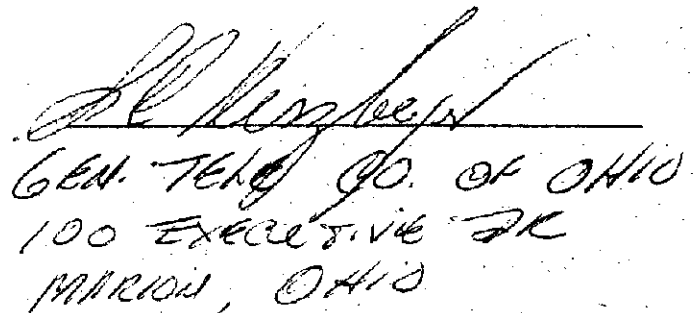 GEN. TELE CO. OF OHIO
100 EXECUTIVE DR
MARION, OHIO